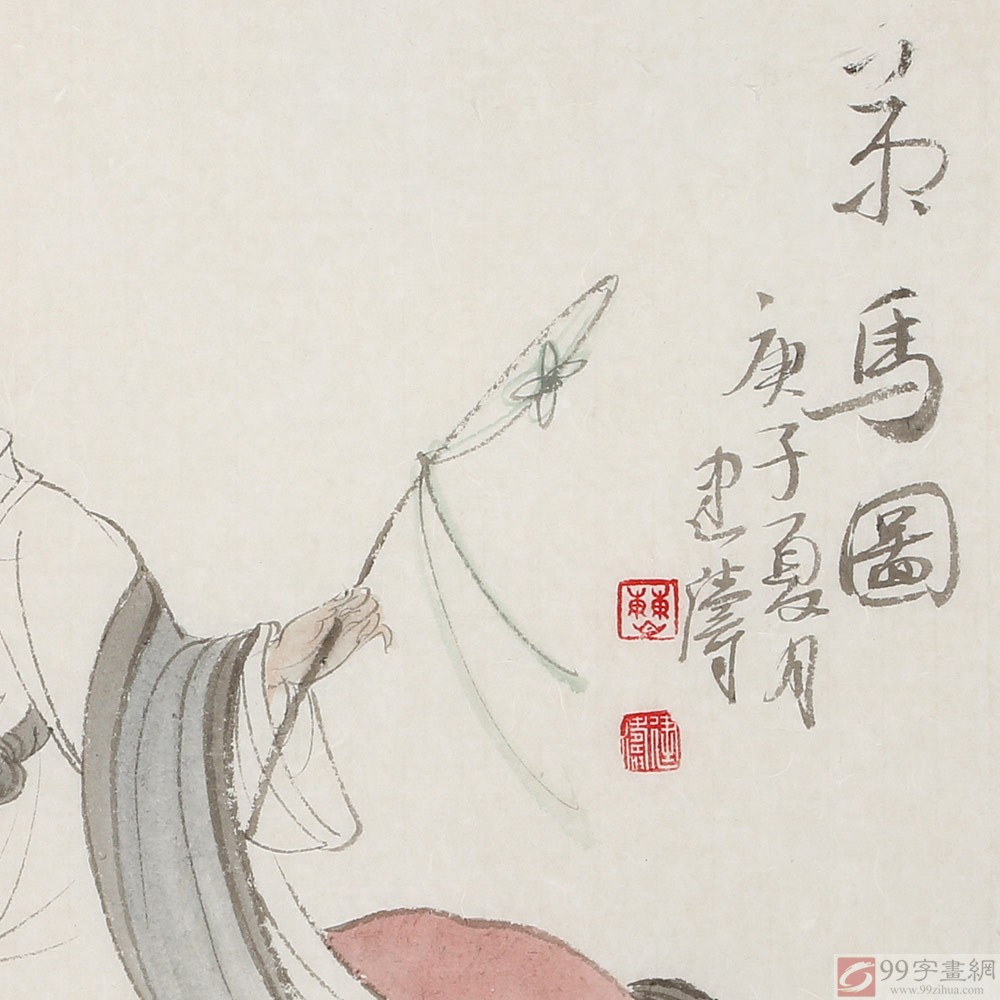 策馬圖
庚子夏月
建濤
建濤
99字畫網
www.99zihua.com